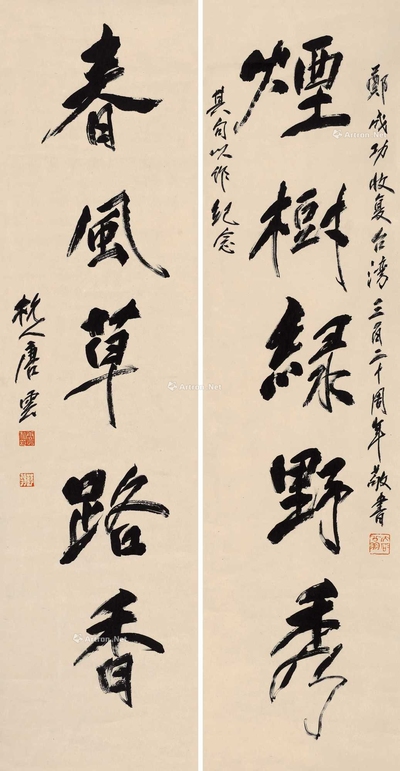 鄭成功收复台湾三百二十周年敬書
其句以作紀念
煙樹綠野秀
春風草路香
杭人唐雲
Artron.Net